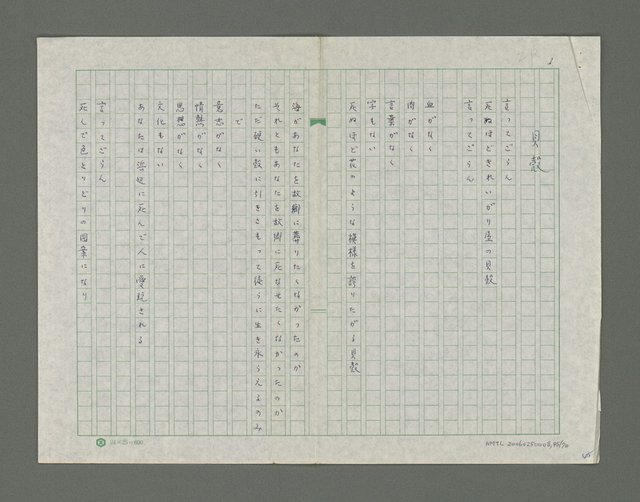 貝殻
言ってごらん
死ぬほどきれいがり屋の貝殻
言ってごらん
血がなく
肉がなく
言葉がなく
字もない
死ぬほど花のような模様を誇りたがる貝殻
海があなたを故郷に葬りたくなかったのか
それともあなたを故郷に死なせたくなかったのか
ただ硬い殻に引きこもって徒らに生き永らえるのみ
で
意志がなく
情熱がなく
思想がなく
文化もない
あなたは海辺に死んで人に愛玩される
言ってごらん
死んで色とりどりの図案になり